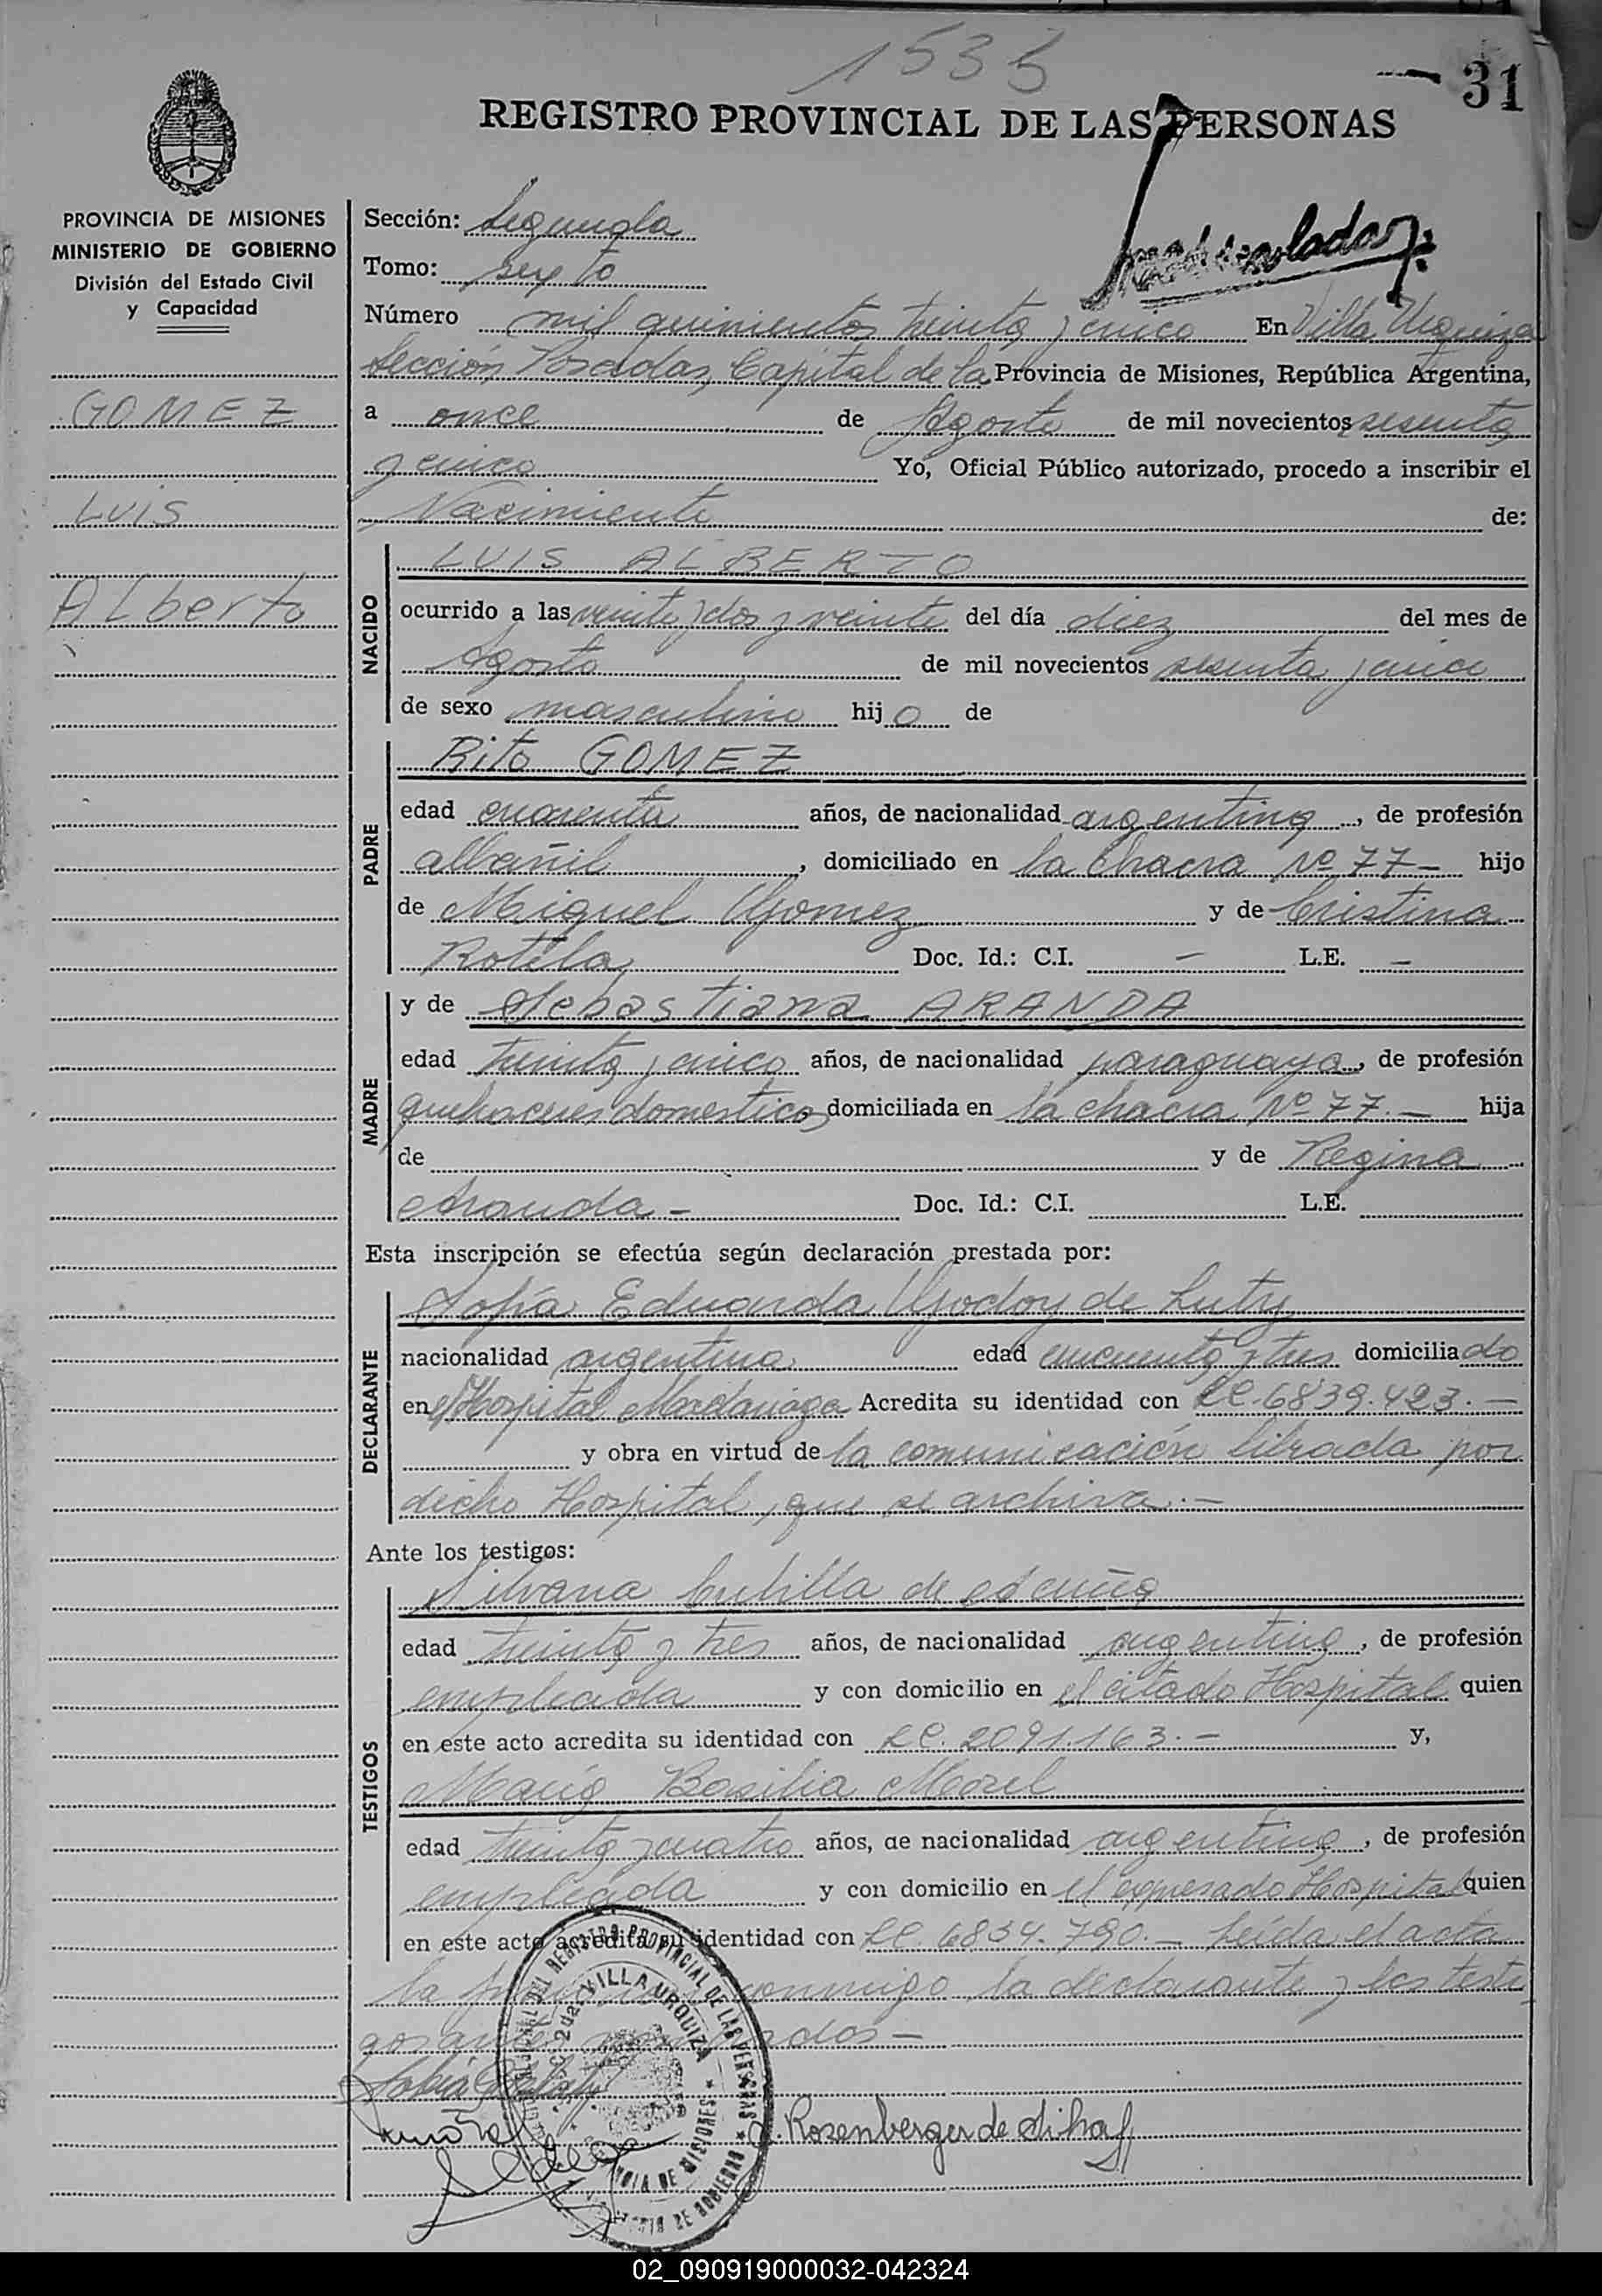 1535
31
REGISTRO PROVINCIAL DE LAS PERSONAS
PROVINCIA DE MISIONES
MINISTERIO DE GOBIERNO
División del Estado Civil
y Capacidad
GOMEZ
LUIS
ALberto
Sección: Segunda
Tomo: sexto
Número mil quinientos treinta y cinco En Villa Urquiza
Sección Posadas, Capital de la Provincia de Misiones, República Argentina,
a once de Agosto de mil novecientos sesenta
y cinco Yo, Oficial Público autorizado, procedo a inscribir el
Nacimiento de:
NACIDO
LUIS ALBERTO
ocurrido a las veinte y dos y veinte del día diez del mes de
Agosto de mil novecientos sesenta y cinco
de sexo masculino hijo de
PADRE
Rito GOMEZ
edad cuarenta años, de nacionalidad argentina, de profesión
albañil, domiciliado en la chacra Nº 77- hijo
de Miguel Gomez y de Cristina
Rotela Doc. Id.: C.I. - L.E. -
MADRE
y de Sebastiana ARANDA
edad treinta y cinco años, de nacionalidad paraguaya, de profesión
quehaceres domesticos domiciliada en la chacra Nº 77.- hija
de y de Regina
Aranda - Doc. Id.: C.I. L.E.
Esta inscripción se efectúa según declaración prestada por:
DECLARANTE
Sofía Eduarda Godoy de Luty
nacionalidad argentina edad cincuenta y tres domiciliado
en Hospital Madariaga Acredita su identidad con LC. 6839.423.-
y obra en virtud de la comunicación librada por
dicho Hospital, que se archiva.-
Ante los testigos:
TESTIGOS
Silvana de Acuña
edad treinta y tres años, de nacionalidad argentina, de profesión
empleada y con domicilio en el citado Hospital quien
en este acto acredita su identidad con LC. 2091.163.- y,
María Basilia Morel
edad treinta y cuatro años, de nacionalidad argentina, de profesión
empleada y con domicilio en el expresado Hospital quien
en este acto acredita su identidad con LC. 6834.790.- Leída el acta
la conmigo la declarante y los testi
gos
REGISTRO PROVINCIAL DE LAS PERSONAS
2da. VILLA URQUIZA
DE MISIONES
Rosenberger de
02_090919000032-042324